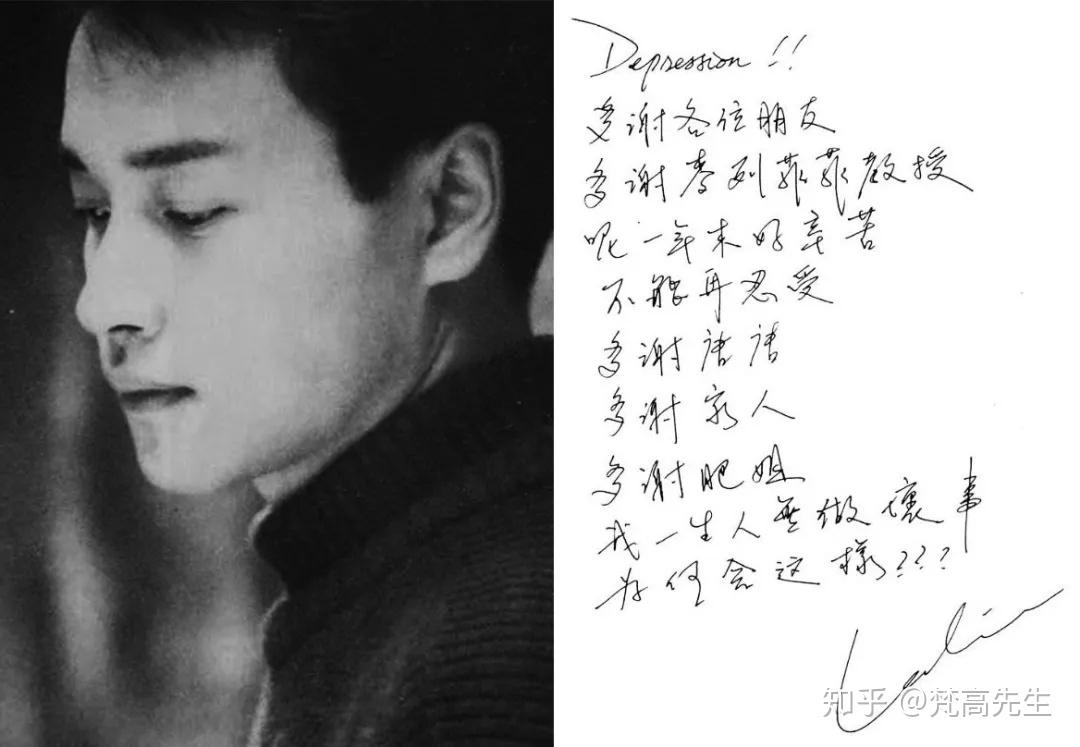 Depression !!
多谢各位朋友
多谢李列菲菲教授
呢一年来好辛苦
不能再忍受
多谢唐唐
多谢家人
多谢肥姐
我一生人無做壞事
为何会这樣???
Leslie
知乎 @梵高先生